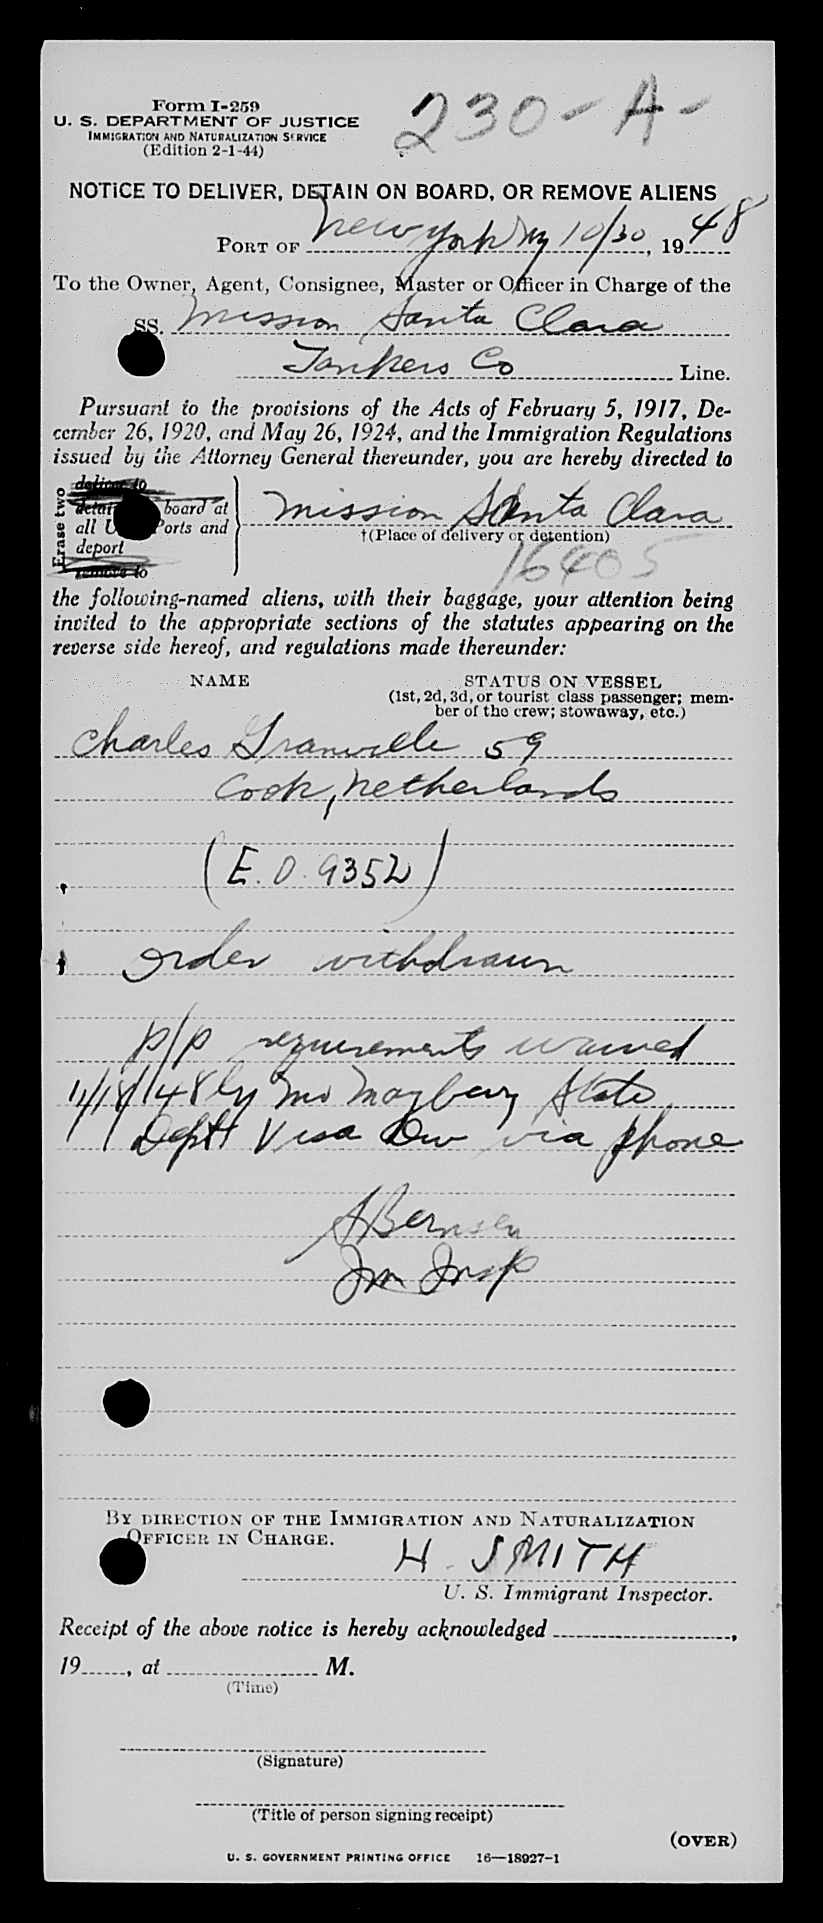 Form I-259
U. S. DEPARTMENT OF JUSTICE
IMMIGRATION AND NATURALIZATION SERVICE
(Edition 2-1-44)
230-A-
NOTICE TO DELIVER, DETAIN ON BOARD, OR REMOVE ALIENS
PORT OF New York NY 10/30, 1948
To the Owner, Agent, Consignee, Master or Officer in Charge of the
SS. Mission Santa Clara
Tankers Co Line.
Pursuant to the provisions of the Acts of February 5, 1917, De-
cember 26, 1920, and May 26, 1924, and the Immigration Regulations
issued by the Attorney General thereunder, you are hereby directed to
Erase two
deliver to
board at
all Ports and
deport
remove to
Mission Santa Clara
†(Place of delivery or detention)
16405
the following-named aliens, with their baggage, your attention being
invited to the appropriate sections of the statutes appearing on the
reverse side hereof, and regulations made thereunder:
NAME
STATUS ON VESSEL
(1st, 2d, 3d, or tourist class passenger; mem-
ber of the crew; stowaway, etc.)
Charles Granville 59
Cook, Netherlands
(E.O. 9352)
Order withdrawn
p/p requirements waived
11/18/48 by Mr Mayberry State
Dept Visa Div via phone
S Bernsen
Im Insp
BY DIRECTION OF THE IMMIGRATION AND NATURALIZATION
OFFICER IN CHARGE.
H. SMITH
U. S. Immigrant Inspector.
Receipt of the above notice is hereby acknowledged ,
19 , at M.
(Time)
(Signature)
(Title of person signing receipt)
(OVER)
U. S. GOVERNMENT PRINTING OFFICE 16—18927-1